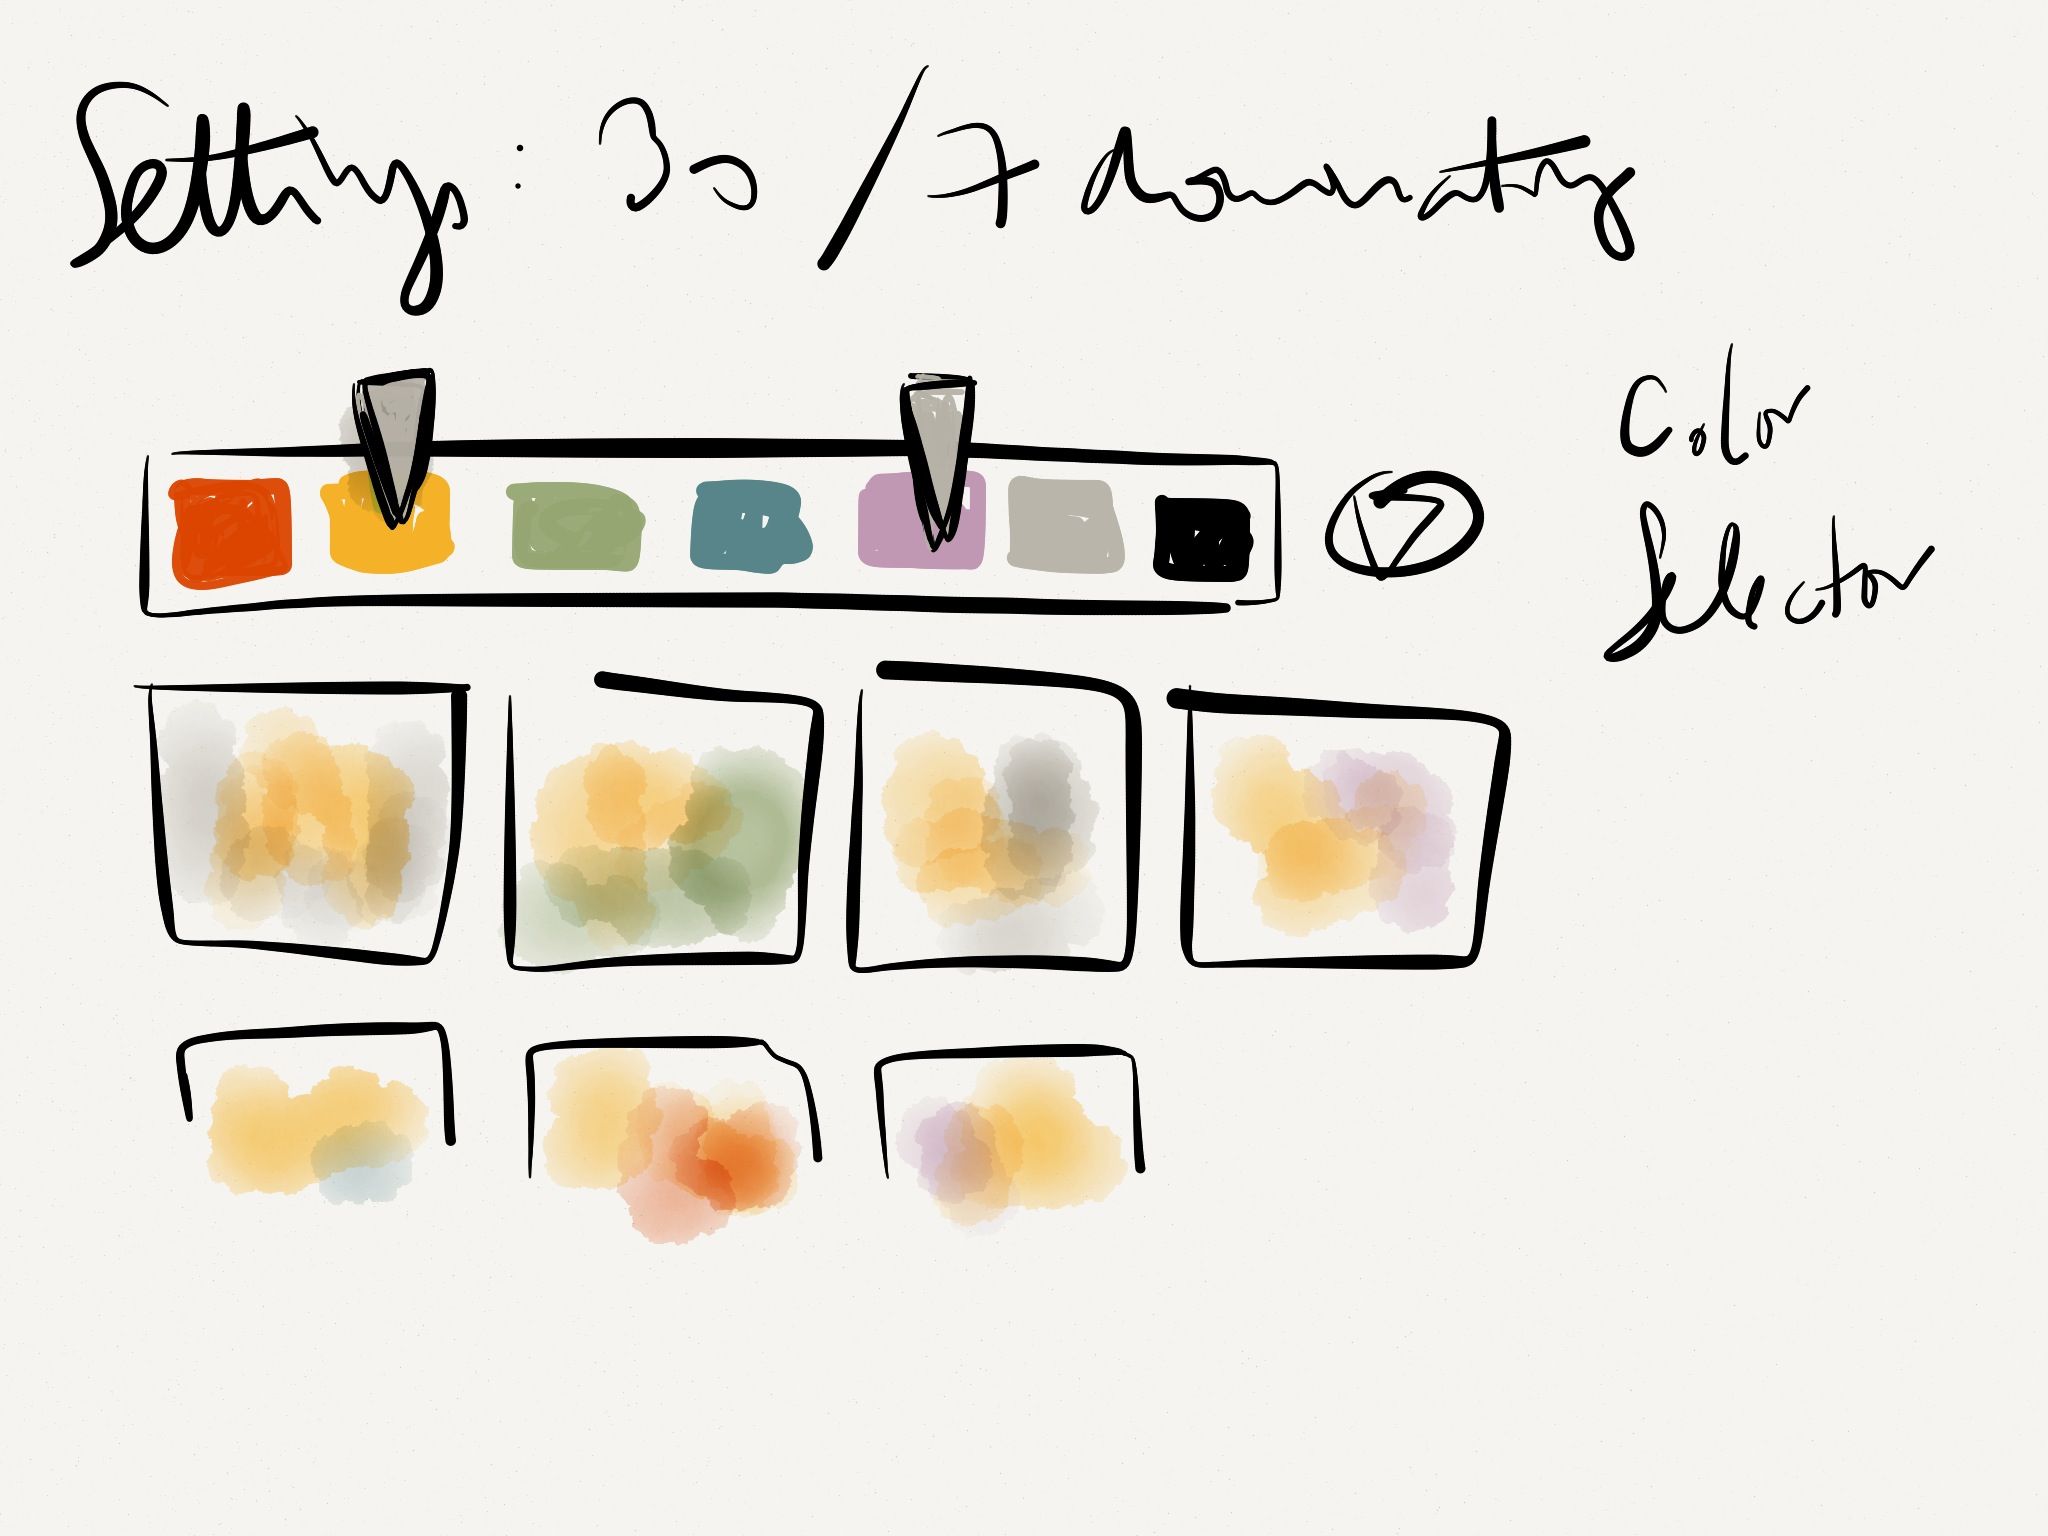 Settings: 30 / 7 dominating
Color
Selector